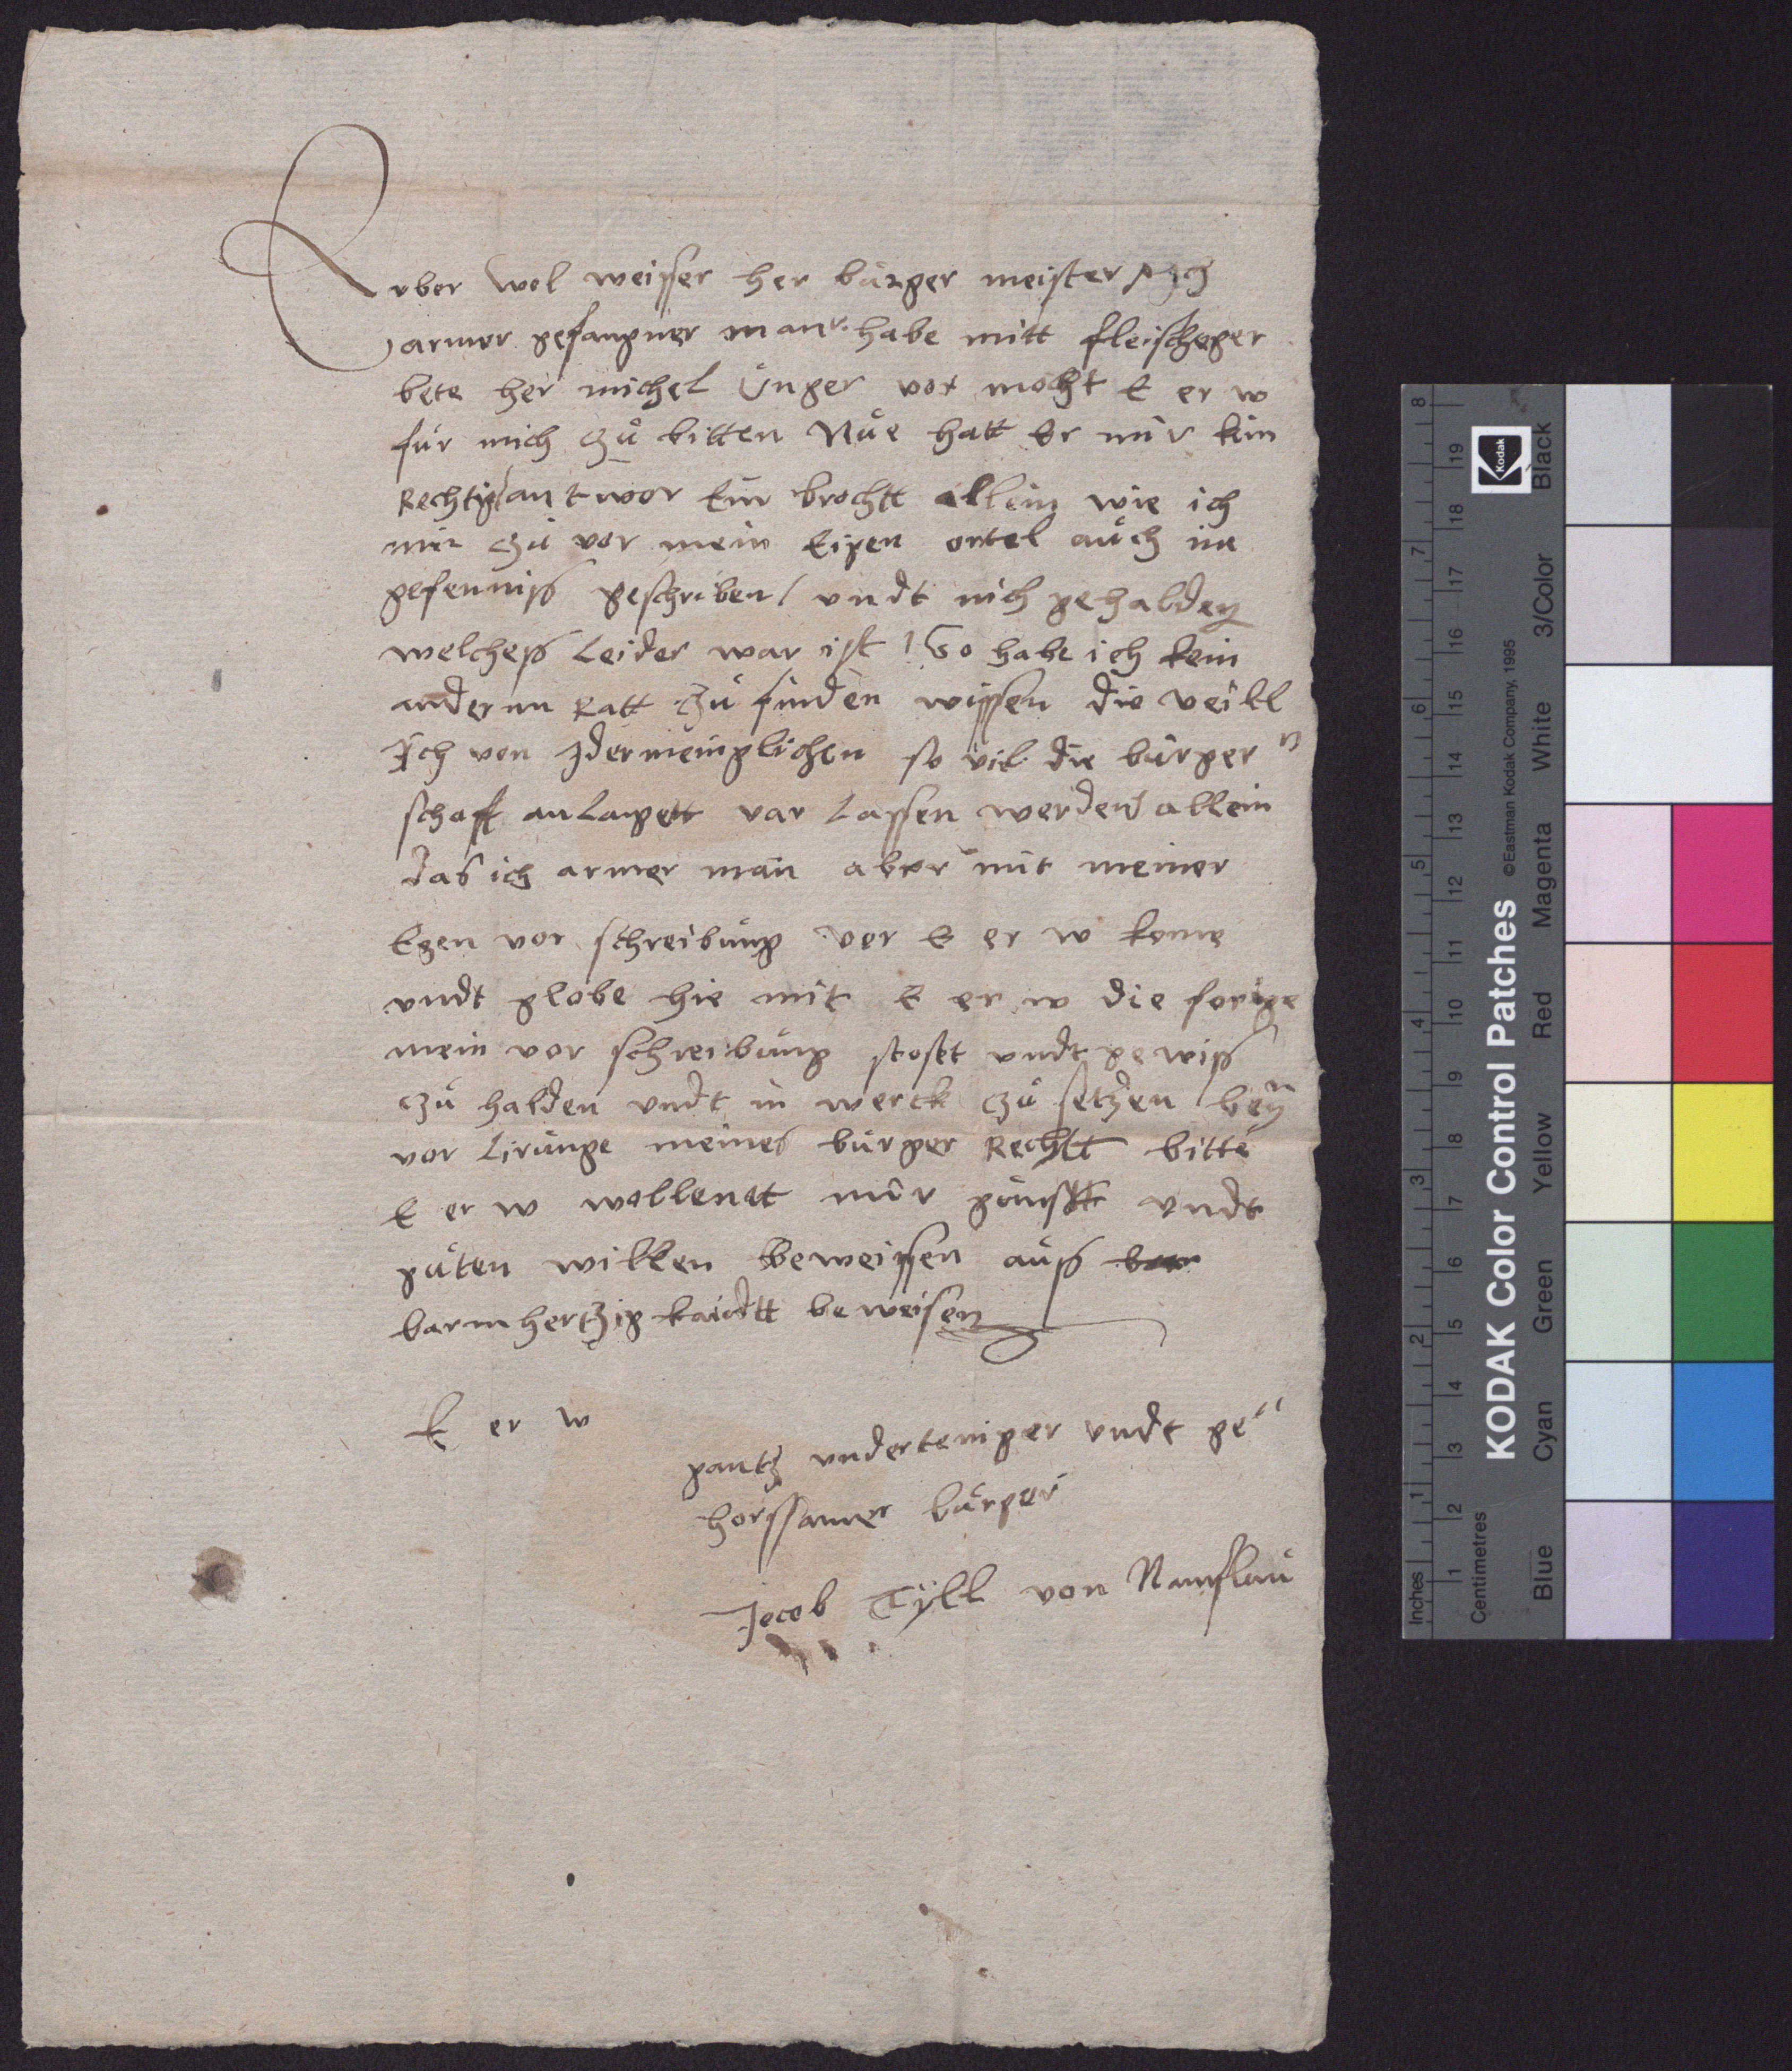 Erber wol weisser her burger meister Ich
armer gefangner man habe mitt fleischeger
bete her michel Unger vor mocht E er w
fur mich zu bitten Nue hatt Er mir kein
Rechtig antwor Ein brochtt allein wie ich
mir zu vor mein Eigen ortel auch im
gefenniss geschriben / undt nich gehalden
welchess Leider war ist / So habe ich kein
andernn Ratt zu finden wissen die veill
Ich von Idermeniglichen so vil die burger
schafft anlangett var Lassen werden allein
das ich armer man aber mit meiner
Egen vor schreibung vor E er w kome
undt globe hie mit E er w die forige
mein vor schreibung undt gewiss
zu halden undt in werck zu setzen bey
vor Lirunge meines burger Rechtt bitte
E er w wollenn mir gunstt undt
guten willen beweissen auss
barmhertzigkaidtt beweisen
E er w
gantz underteniger undt ge
horssamer burger
Jocob Tyll von Namslau
KODAK Color Control Patches
©Eastman Kodak Company, 1995
Kodak
Inches 1 2 3 4 5 6 7 8
Centimetres 1 2 3 4 5 6 7 8 9 10 11 12 13 14 15 16 17 18 19
Blue Cyan Green Yellow Red Magenta White 3/Color Black